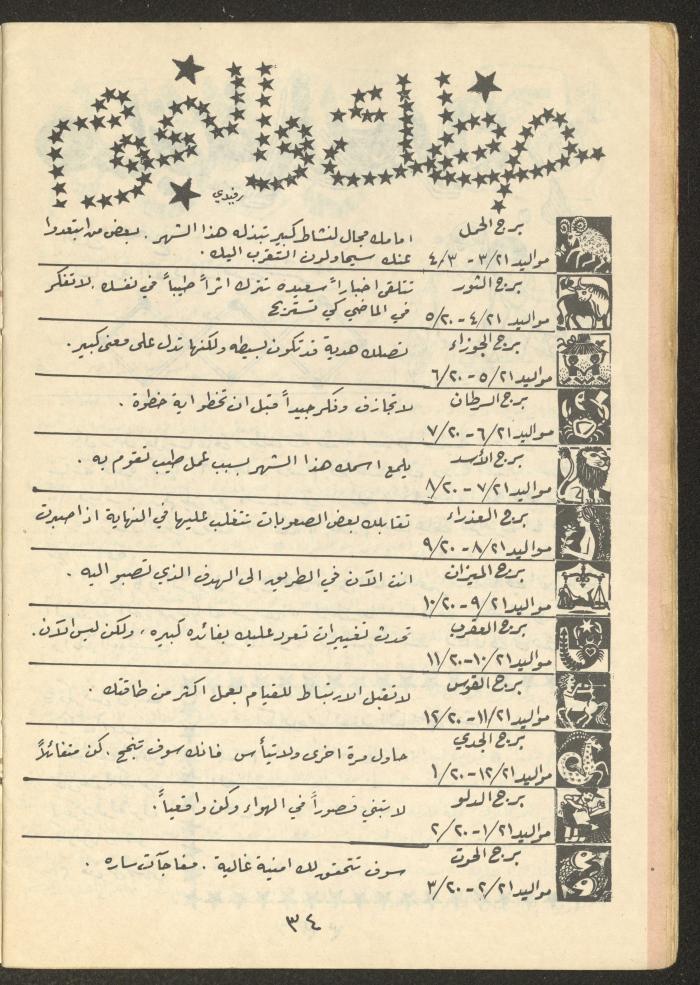 رفيدي
برج الحمل
مواليد ٣/٢١ - ٤/٣
امامك مجال لنشاط كبير تبذله هذا الشهر . بعض من ابتعدوا
عنك سيحاولون التقرب اليك .
برج الثور
مواليد ٤/٢١ - ٥/٢٠
تتلقى اخباراً سعيده تترك اثراً طيباً في نفسك . لا تفكر
في الماضي كي تستريح
برج الجوزاء
مواليد ٥/٢١ - ٦/٢٠
تصلك هدية قد تكون بسيطه ولكنها تدل على معنى كبير .
برج السرطان
مواليد ٦/٢١ - ٧/٢٠
لا تجازف وفكر جيداً قبل ان تخطو اية خطوة .
برج الأسد
مواليد ٧/٢١ - ٨/٢٠
يلمع اسمك هذا الشهر بسبب عمل طيب تقوم به .
برج العذراء
مواليد ٨/٢١ - ٩/٢٠
تقابلك بعض الصعوبات تتغلب عليها في النهاية اذا صبرت
برج الميزان
مواليد ٩/٢١ - ١٠/٢٠
انت الآن في الطريق الى الهدف الذي تصبو اليه .
برج العقرب
مواليد ١٠/٢١ - ١١/٢٠
تحدث تغييرات تعود عليك بفائده كبيره ، ولكن ليس الآن .
برج القوس
مواليد ١١/٢١ - ١٢/٢٠
لا تقبل الارتباط للقيام بعمل اكثر من طاقتك .
برج الجدي
مواليد ١٢/٢١ - ١/٢٠
حاول مرة اخرى ولا تيأس فانك سوف تنجح . كن متفائلاً
برج الدلو
مواليد ١/٢١ - ٢/٢٠
لا تبني قصوراً في الهواء وكن واقعياً .
برج الحوت
مواليد ٢/٢١ - ٣/٢٠
سوف تتحقق لك امنية غالية . مفاجآت ساره .
٣٤